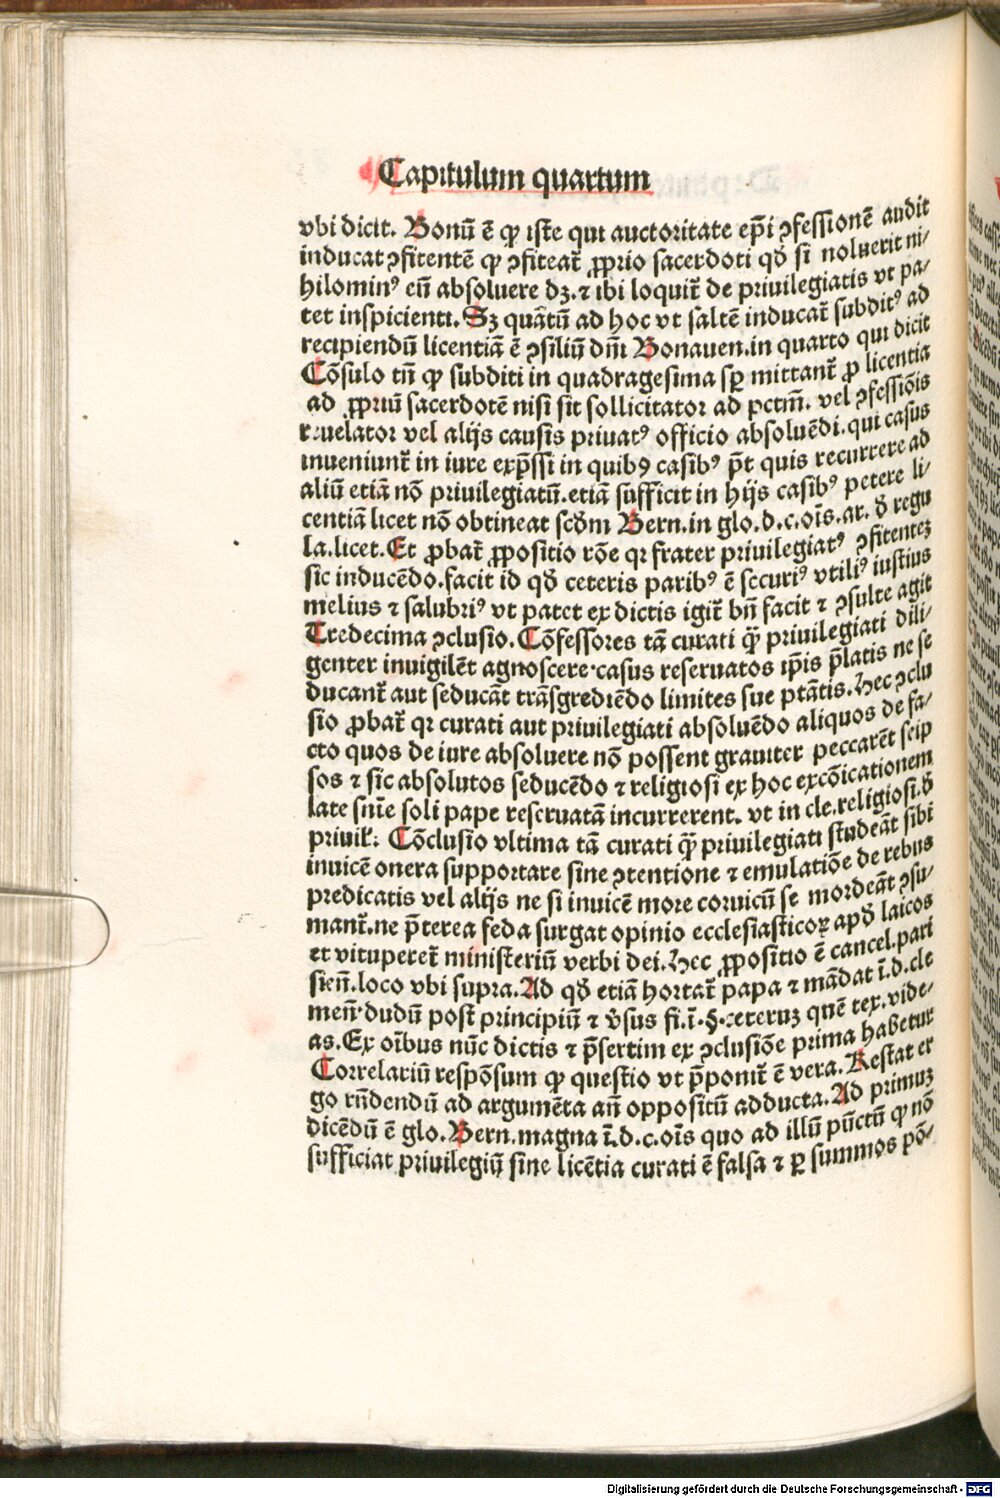 Capitulum quartum
vbi dicit. Bonū ē ꝙ iste qui auctoritate ep̄i ꝯfessionē audit
inducat ꝯfitentē ꝙ ꝯfiteat᷑ ꝓprio sacerdoti qđ si noluerit ni/
hilomin⁹ eū absoluere dꝫ. ⁊ ibi loquit᷑ de priuilegiatis vt pa/
tet inspicienti. Sꝫ quātū ad hoc vt saltē inducat᷑ subdit⁹ ad
recipiendū licentiā ē ꝯsiliū dn̄i Bonauen. in quarto qui dicit
Cōsulo tn̄ ꝙ subditi in quadragesima sꝑ mittant᷑ ꝓ licentia
ad ꝓpriū sacerdotē nisi sit sollicitator ad pctm̄. vel ꝯfessiōis
reuelator vel alijs causis priuat⁹ officio absoluēdi. qui casus
inueniunt᷑ in iure exp̄ssi in quibꝰ casib⁹ p̄t quis recurrere ad
aliū etiā nō priuilegiatū. etiā sufficit in hijs casib⁹ petere li/
centiā licet nō obtineat scđm Bern. in glo. d. c. oīs. ar. đ regu
la. licet. Et ꝓbat᷑ ꝓpositio rōe qꝛ frater priuilegiat⁹ ꝯfitentez
sic inducēdo. facit id qđ ceteris parib⁹ ē securi⁹ vtili⁹ iustius
melius ⁊ salubri⁹ vt patet ex dictis igit᷑ bn̄ facit ⁊ ꝯsulte agit
Tredecima ꝯclusio. Cōfessores tā curati q̄ꝫ priuilegiati dili/
genter inuigilēt agnoscere casus reseruatos ip̄is p̄latis ne se
ducant᷑ aut seducāt trāsgrediēdo limites sue ptātis. Hec ꝯclu
sio ꝓbat᷑ qꝛ curati aut priuilegiati absoluēdo aliquos de fa/
cto quos de iure absoluere nō possent grauiter peccarēt seip
sos ⁊ sic absolutos seducēdo ⁊ religiosi ex hoc excōicationem
late sn̄ie soli pape reseruatā incurrerent. vt in cle. religiosi. đ
priuil. Cōclusio vltima tā curati q̄ꝫ priuilegiati studeāt sibi
inuicē onera supportare sine ꝯtentione ⁊ emulatiōe de rebus
predicatis vel alijs ne si inuicē more coruicū se mordeāt ꝯsu/
mant᷑. ne p̄terea feda surgat opinio ecclesiasticoꝝ apđ laicos
et vituperet᷑ ministeriū verbi dei. Hec ꝓpositio ē cancel. pari
sien̄. loco vbi supra. Ad qđ etiā hortat᷑ papa ⁊ mādat ī. d. cle
men̄. dudū post principiū ⁊ v̓sus fi. ī. §. ceteruz quē tex. vide/
as. Ex oībus nūc dictis ⁊ p̄sertim ex ꝯclusiōe prima habetur
Correlariū respōsum ꝙ questio vt p̄ponit᷑ ē vera. Restat er
go rn̄dendū ad argumēta an̄ oppositū adducta. Ad primuꝫ
dicēdū ē glo. Bern. magna ī. d. c. oīs quo ad illū pūctū ꝙ nō
sufficiat priuilegiū sine licētia curati ē falsa ⁊ ꝑ summos pō/
Digitalisierung gefördert durch die Deutsche Forschungsgemeinschaft - DFG